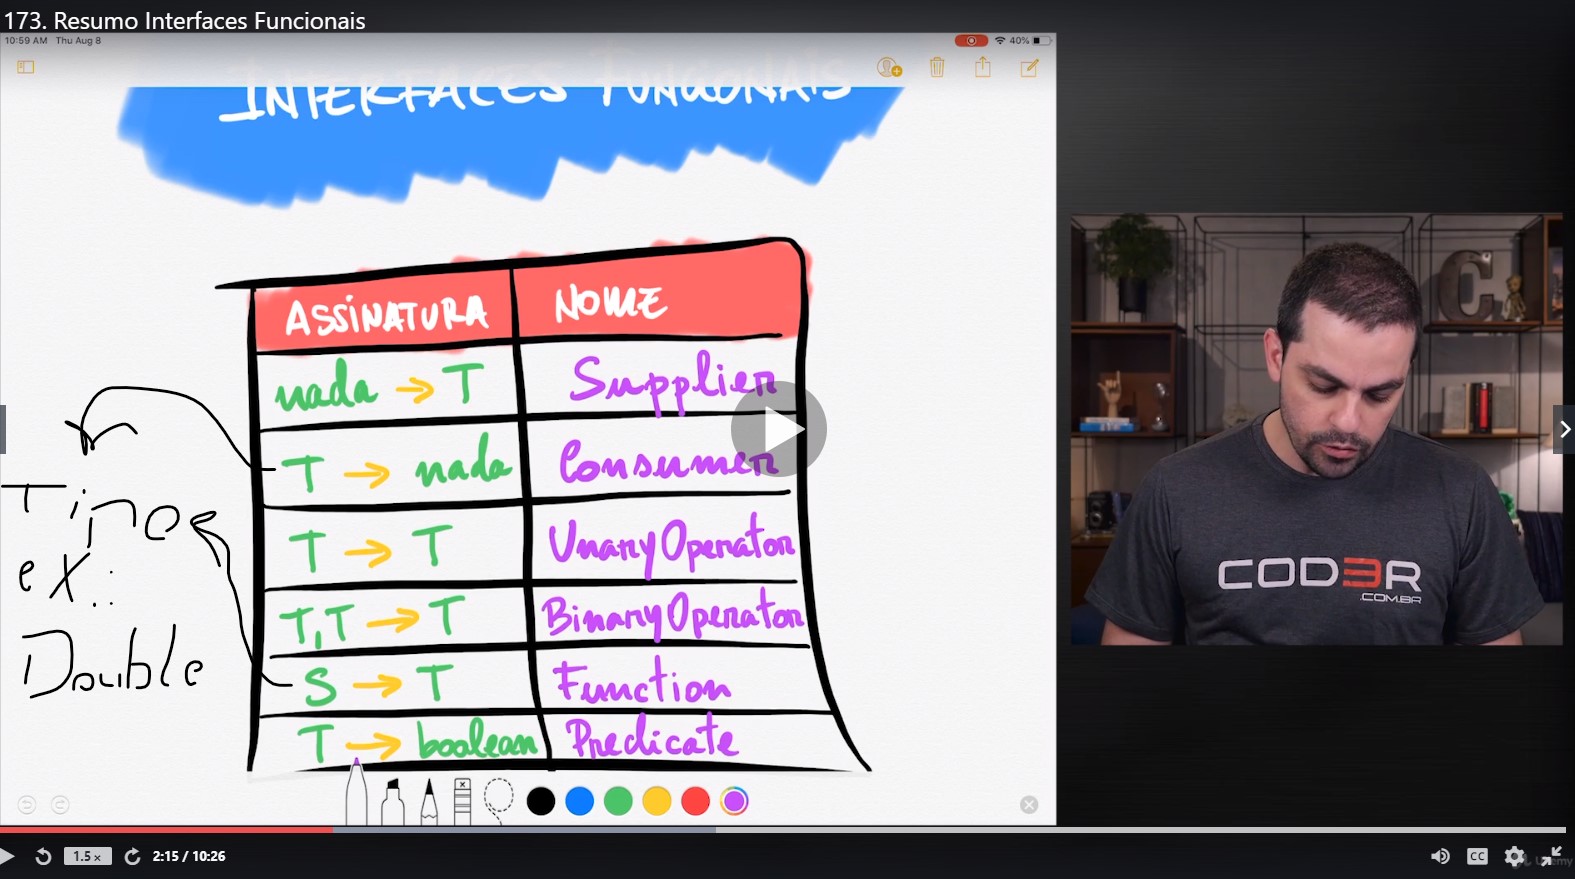 173. Resumo Interfaces Funcionais
10:59 AM Thu Aug 8
40%
INTERFACES FUNCIONAIS
ASSINATURA NOME
nada → T Supplier
T → nada Consumer
T → T UnaryOperator
T,T → T BinaryOperator
S → T Function
T → boolean Predicate
Tipos
ex.:
Double
C
COD3R
.COM.BR
1.5 x
2:15 / 10:26
CC
Udemy